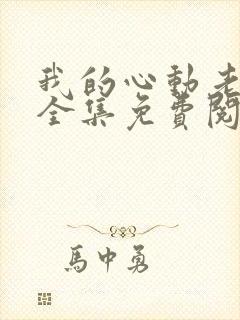 我的心動老
全集免費閱
馬中勇